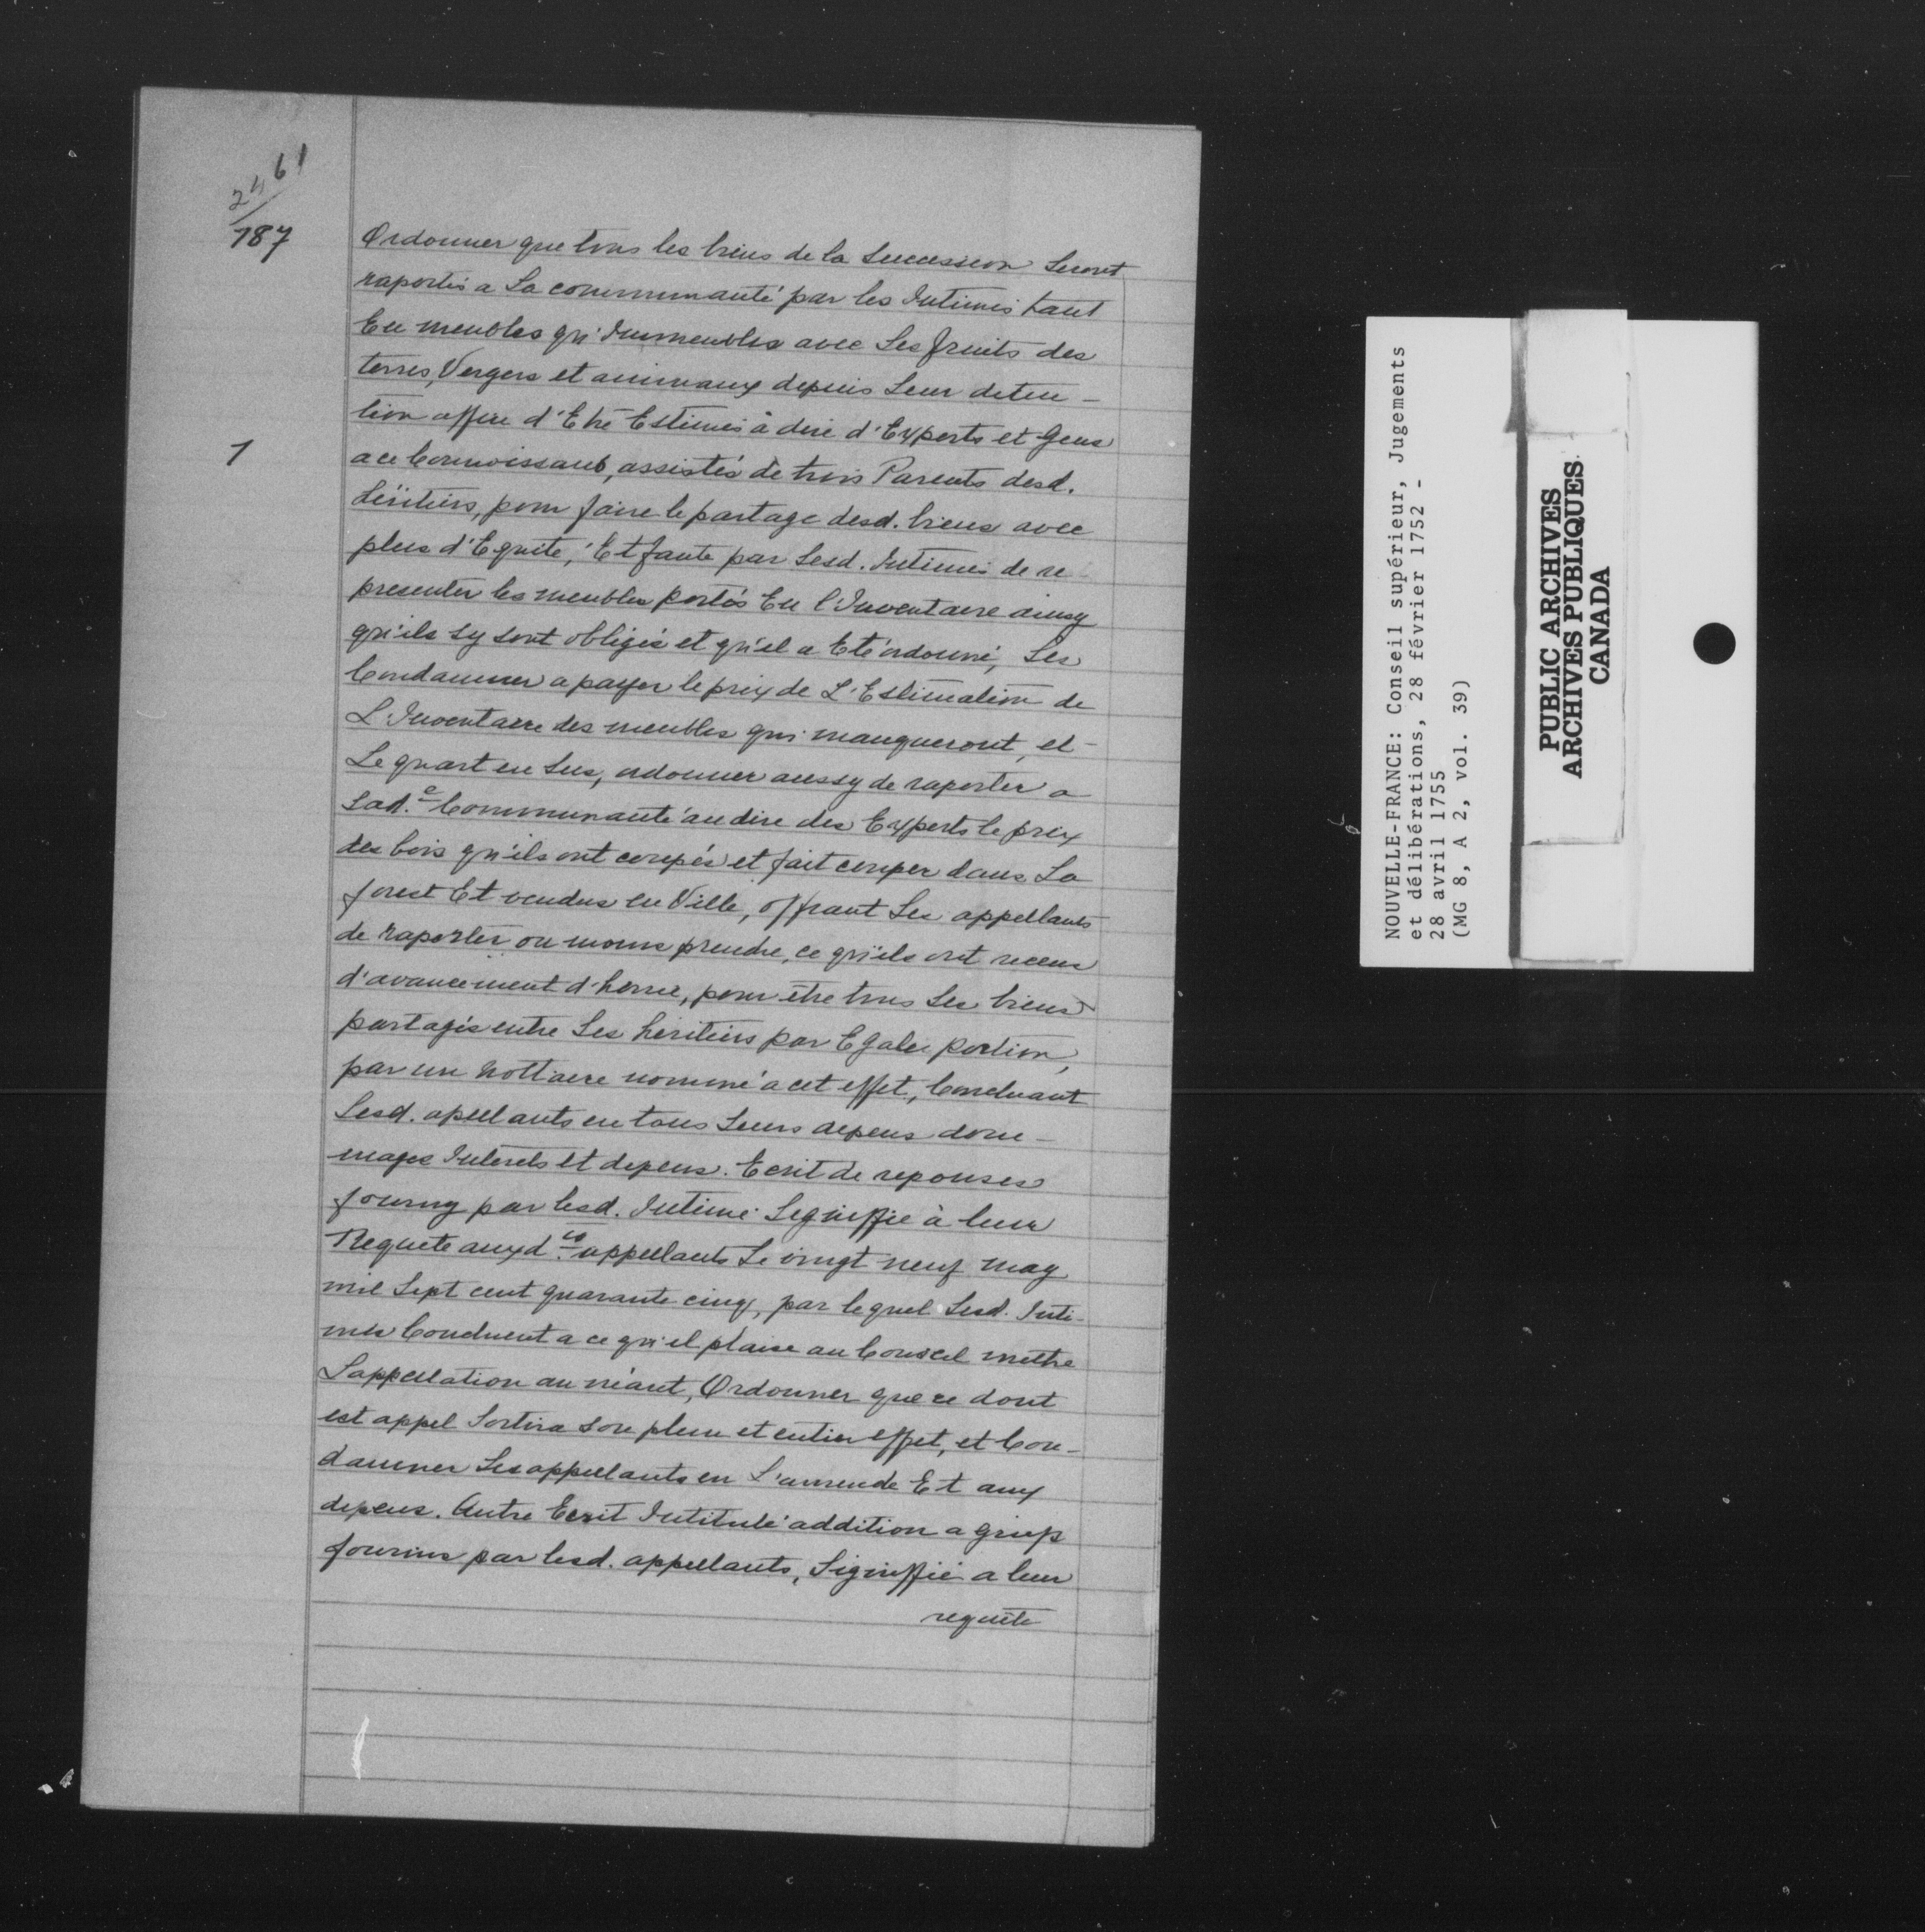 2461
187
Ordonner que tous les biens de la Succession Seront
raportés a La communauté par les Intimés tant
En meubles qu'Immeubles avec Les fruits des
terres, Vergers et animaux depuis Leur deten-
tion affin d'Etre Estimés à dire d'Experts et Gens
1
a ce Connoissants, assistés de trois Parents desd.
héritiers, pour faire le partage desd. biens avec
plus d'Equite, Et faute par Lesd. Intimés de re-
presenter les meubles portés En l'Inventaire ainsy
qu'ils sy sont obligés et qu'il a Eté ordonné, Les
Condamner a payer le prix de L'Estimation de
L'Inventaire des meubles qui manqueront, et
Le quart en Sus, ordonner aussy de raporter a
Lad.e Communauté au dire des Experts le prix
des bois qu'ils ont coupés et fait couper dans La
forest Et vendus en Ville, offrant Les appellants
de raporter ou moins prendre, ce qu'ils ont receus
d'avancement d'hoirie, pour être tous Les biens
partagés entre Les héritiers par Egale portion,
par un nottaire nommé a cet effet, Concluant
Lesd. apellants en tous Leurs depens dom-
mages Interets et depens. Ecrit de reponses
fourny par lesd. Intimé Signiffié à leur
Requete auxd.es appellants Le vingt neuf may
mil Sept cent quarante cinq, par lequel Lesd. Inti-
més Concluent a ce qu'il plaise au Conseil mettre
L'appellation au néant, Ordonner que ce dont
est appel Sortira son plein et entier effet, et Con-
damner Les appellants en L'amende Et aux
depens. Autre Ecrit Intitulé addition a griefs
fournis par lesd. appellants, Signiffié a leur
requête
NOUVELLE-FRANCE: Conseil supérieur, Jugements
et délibérations, 28 février 1752 -
28 avril 1755
(MG 8, A 2, vol. 39)
PUBLIC ARCHIVES
ARCHIVES PUBLIQUES
CANADA